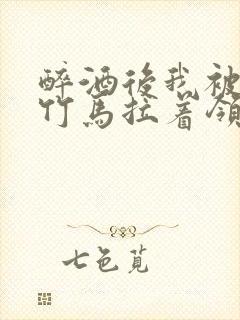 醉酒後我被
竹馬拉着領
七色菟